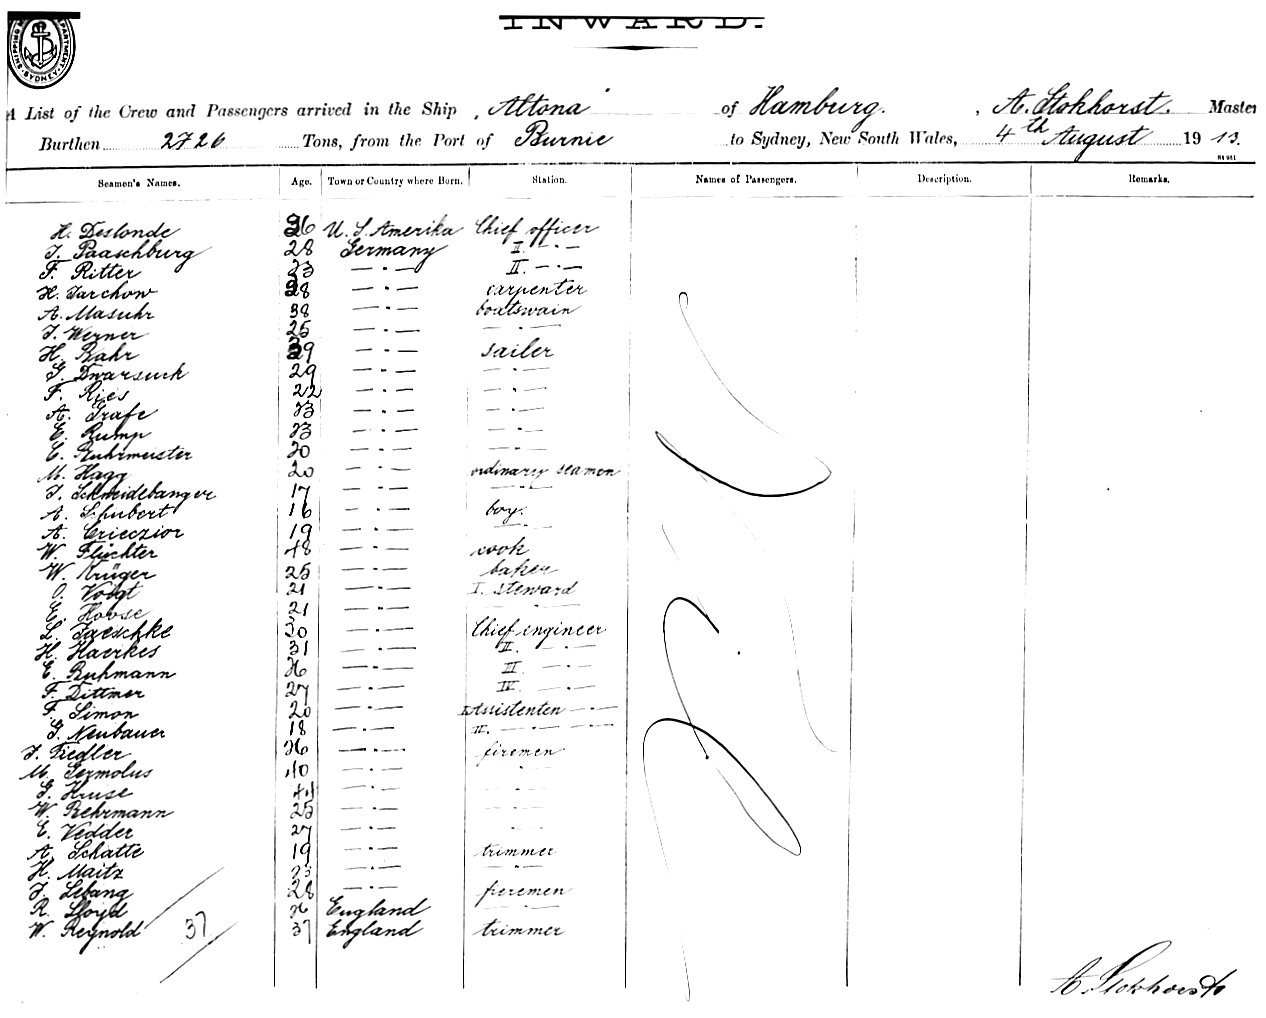 SHIPPING DEPARTMENT. SYDNEY.
INWARD.
A List of the Crew and Passengers arrived in the Ship, Altona of Hamburg. , A. Stokhorst. Master
Burthen 2726 Tons, from the Port of Burnie to Sydney, New South Wales, 4th August 1913.
Seamen's Names. Age. Town or Country where Born. Station. Names of Passengers. Description. Remarks.
H. Deslonde 36 U. S. Amerika Chief officer
J. Paaschburg 28 Germany II. — · —
F. Ritter 23 — · — II. — · —
H. Jarchow 28 — · — carpenter
A. Masuhr 38 — · — boatswain
J. Werner 25 — · — — · —
H. Bahr 39 — · — sailer
G. Dwarsuck 29 — · — — · —
F. Ries 22 — · — — · —
A. Grafe 23 — · — — · —
E. Rump 23 — · — — · —
C. Ruhrmeister 20 — · — — · —
M. Hagg 20 — · — ordinary seamen
J. Schmeidebanger 17 — · — — · —
A. Schubert 16 — · — boy.
A. Crieczior 19 — · — — · —
W. Flüchter 48 — · — cook
W. Krüger 25 — · — baker
O. Voigt 21 — · — I. steward
E. Hoose 21 — · — — · —
L. Jaeschke 30 — · — Chief engineer
H. Haerkes 31 — · — II. — · —
E. Buhmann 26 — · — III. — · —
F. Dittmer 27 — · — IV. — · —
F. Simon 20 — · — I Assistenten — · —
G. Neubauer 18 — · — II. — · — — · —
J. Fiedler 26 — · — firemen
M. Germolus 40 — · — — · —
G. Huse 44 — · — — · —
W. Behrmann 25 — · — — · —
E. Vedder 27 — · — — · —
A. Schatte 19 — · — trimmer
H. Maitz 23 — · — — · —
J. Lebang 28 — · — firemen
R. Lloyd 26 England — · —
W. Reynold 37 37 England trimmer
A Stokhorst